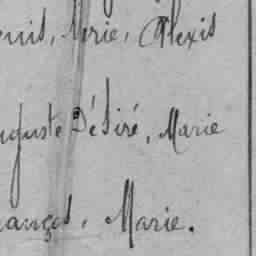 enis, Marie, Alexis
uguste Désiré, Marie
ançois, Marie.